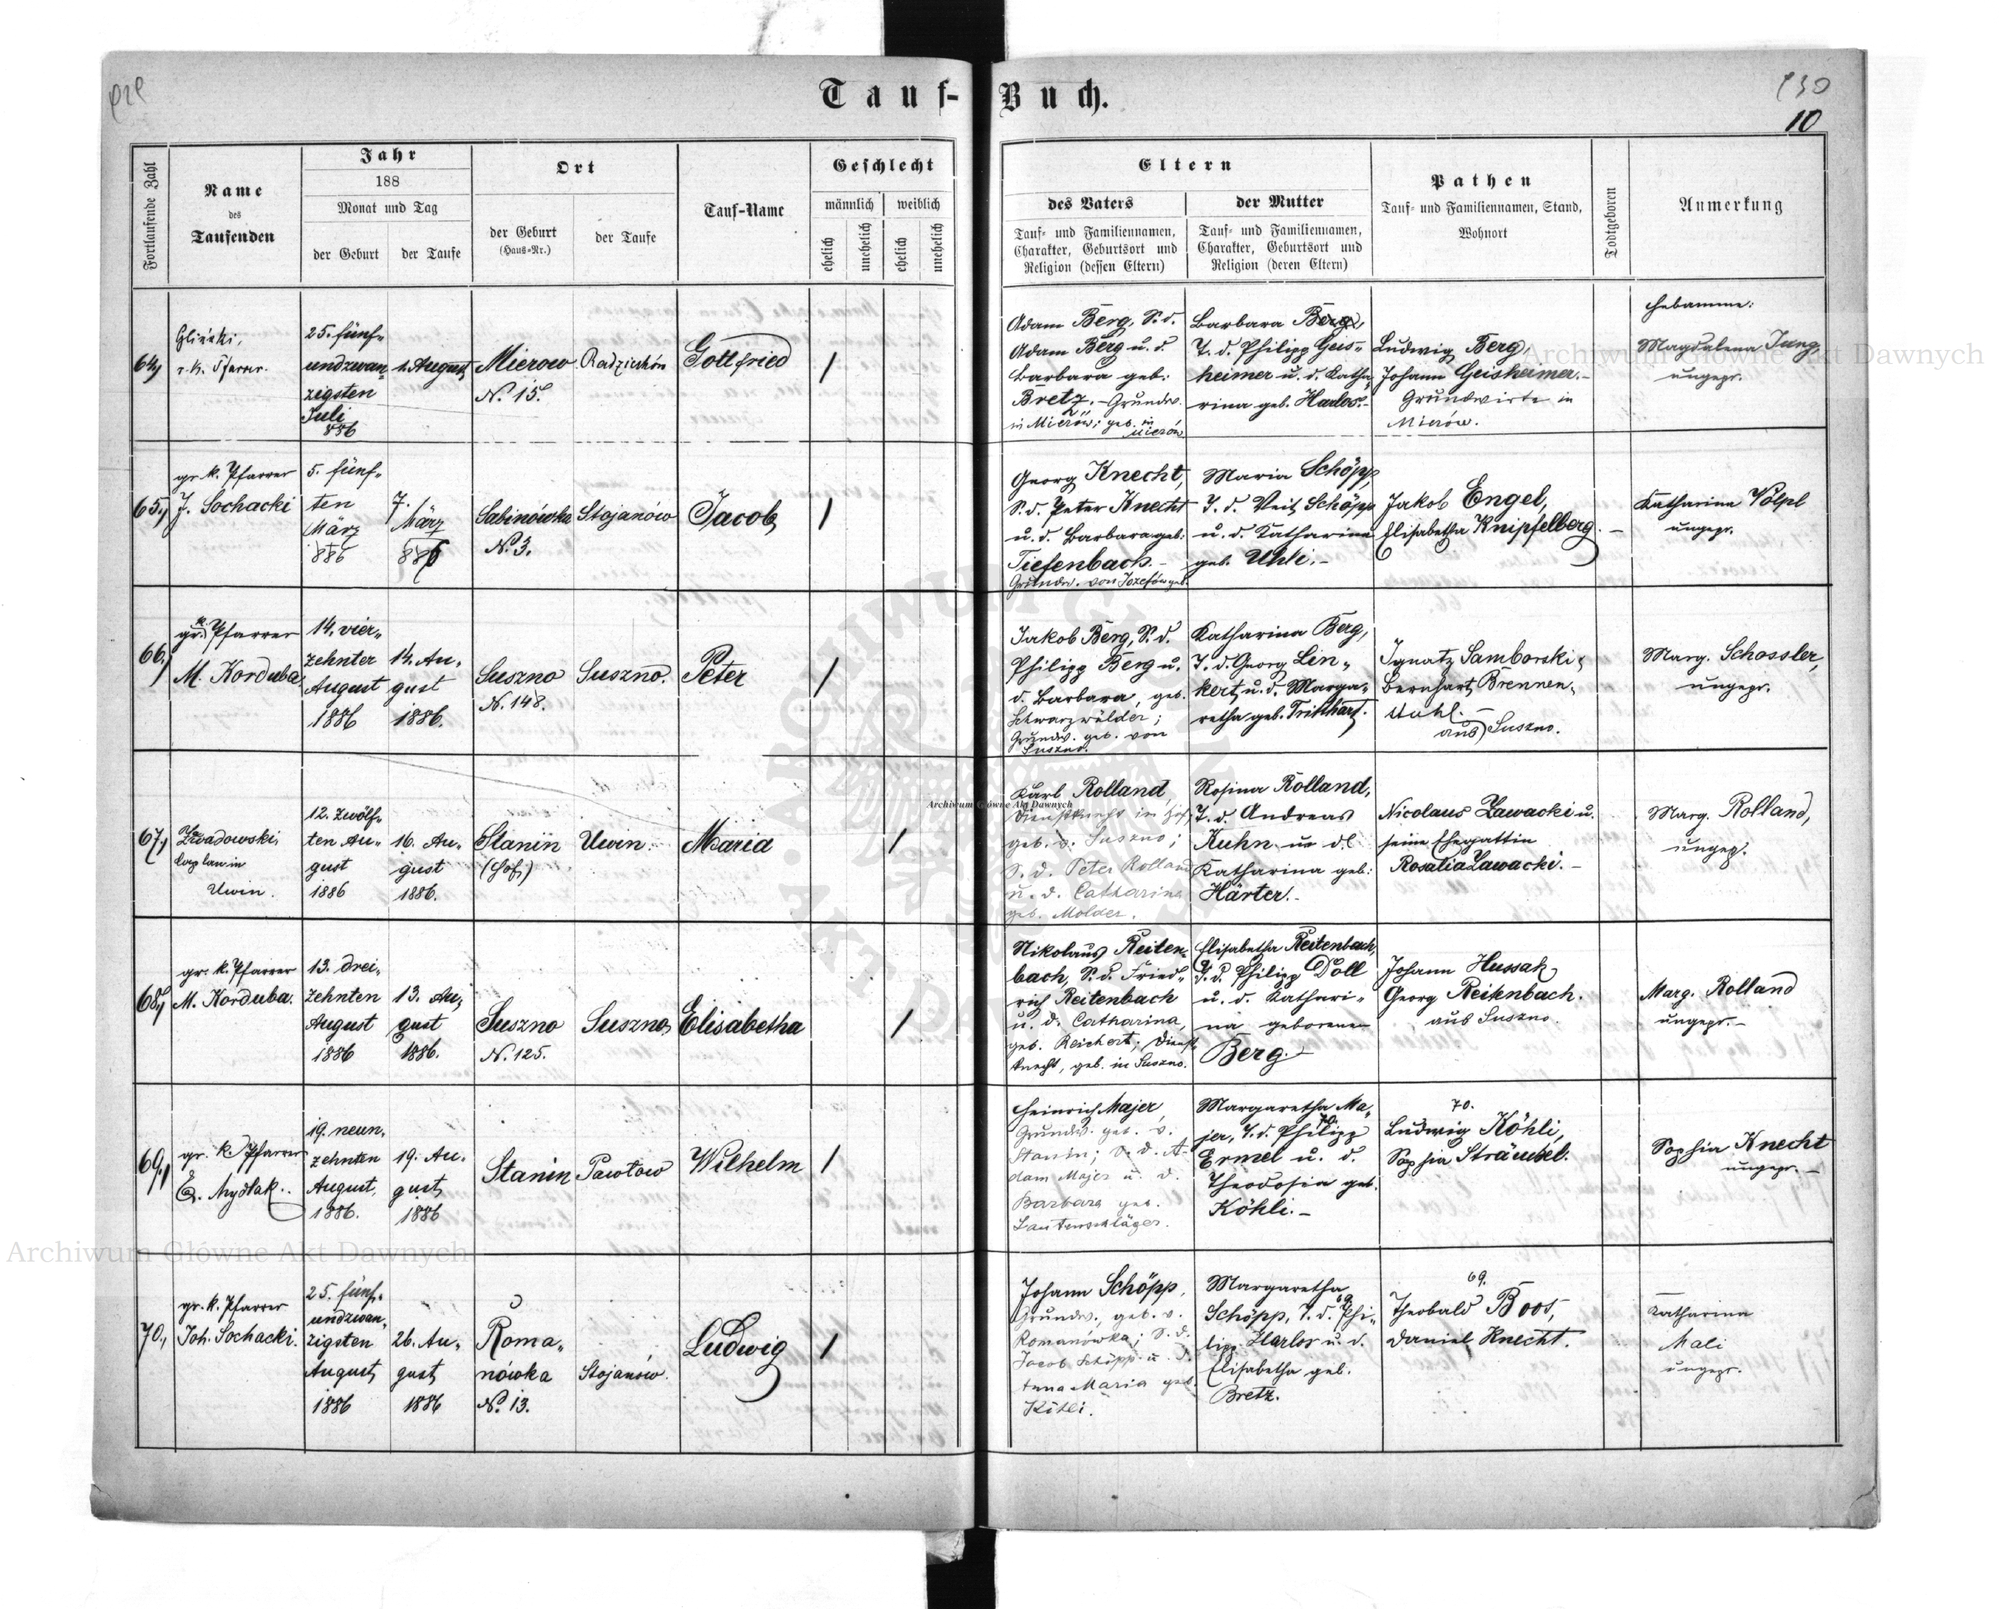 Tauf-Buch.
10
Fortlaufende Zahl
Name
des
Taufenden
Jahr
188
Monat und Tag
der Geburt
der Taufe
Ort
der Geburt
(Haus-Nr.)
der Taufe
Tauf-Name
Geschlecht
männlich
weiblich
ehelich
unehelich
ehelich
unehelich
Eltern
des Vaters
Tauf- und Familiennamen,
Charakter, Geburtsort und
Religion (dessen Eltern)
der Mutter
Tauf- und Familiennamen,
Charakter, Geburtsort und
Religion (deren Eltern)
Pathen
Tauf- und Familiennamen, Stand,
Wohnort
Todtgeboren
Anmerkung
64,
r. k. Pfarrer.
25. fünf-
undzwan-
zigsten
Juli
886
1. August
Mierow
N. 15.
Radziechów
Gottfried
/
Adam Berg, S. d.
Adam Berg u. d.
Barbara geb.
Bretz. - Grundw.
in Mierów; geb. in
Mierów
Barbara Berg,
T. d. Philipp Geis-
heimer u. d. Katha-
rina geb. Harlos.-
Ludwig Berg,
Johann Geisheimer.-
Grundwirte in
Mierów.
Hebamme:
Magdalena Jung,
ungepr.
65,
gr. k. Pfarrer
J. Sochacki
5. fünf-
ten
März
886
7.
März
886
Sabinówka
N. 3.
Stojanów
Jacob
/
Georg Knecht,
S. d. Peter Knecht
u. d. Barbara geb.
Tiefenbach. -
Grundw. von Jozefów geb.
Maria Schöpp,
T. d. Veit Schöpp
u. d. Katharina
geb. Uhli. -
Jakob Engel,
Elisabetha Knipfelberg. -
Katharina Völpl
ungepr.
66,
gr. k. Pfarrer
M. Korduba
14. vier-
zehnter
August
1886
14. Au-
gust
1886.
Suszno
N. 148.
Suszno.
Peter
/
Jakob Berg, S. d.
Philipp Berg u.
d. Barbara, geb.
Schwarzwälder;
Grundw. geb. von
Suszno.
Katharina Berg,
T. d. Georg Lin-
kert u. d. Marga-
retha geb. Tritthart.
Ignatz Samborski,
Bernhart Brennen-
stuhl. -
aus Suszno.
Marg. Schossler,
ungepr.
67,
Kaplan in
Uwin.
12. zwölf-
ten Au-
gust
1886
16. Au-
gust
1886.
Stanin
(Hof)
Uwin.
Maria
/
Karl Rolland,
Dienstknecht in Hof,
geb. v. Suszno;
S. d. Peter Rolland
u. d. Catharina
geb. Molder.
Rosina Rolland,
T. d. Andreas
Kuhn u. d.
Katharina geb.
Härter. -
Nicolaus Zawacki u.
seine Ehegattin
Rosalia Zawacki. -
Marg. Rolland,
ungepr.
68,
gr. k. Pfarrer
M. Korduba.
13. drei-
zehnten
August
1886
13. Au-
gust
1886.
Suszno
N. 125.
Suszno
Elisabetha
/
Nikolaus Reiten-
bach, S. d. Fried-
rich Reitenbach
u. d. Catharina,
geb. Reichert; Dienst-
knecht, geb. in Suszno.
Elisabetha Reitenbach,
T. d. Philipp Doll
u. d. Kathari-
na geborenen
Berg. -
Johann Hussak
Georg Reitenbach.
aus Suszno.
Marg. Rolland
ungepr. -
69,
gr. k. Pfarrer
19. neun-
zehnten
August,
1886.
19. Au-
gust
1886
Stanin
Pawłow
Wilhelm
/
Heinrich Majer,
Grundw. geb. v.
Stanin; S. d. A-
dam Majer u. d.
Barbara geb.
Lautenschläger.
Margaretha Ma-
jer, T. d. Philipp
Ermel u. d.
Theodosia geb.
Köhli. -
70.
Ludwig Köhli,
Sophia Sträubel.
Sophia Knecht
ungepr. -
70,
gr. k. Pfarrer
Joh. Sochacki.
25. fünf-
undzwan-
zigsten
August
1886
26. Au-
gust
1886
Roma-
nówka
N. 13.
Stojanów.
Ludwig
/
Johann Schöpp,
Grundw., geb. v.
Romanówka; S. d.
Jacob Schöpp u. d.
Anna Maria geb.
Köhli.
Margaretha
Schöpp, T. d. Phi-
lipp Harlos u. d.
Elisabetha geb.
Bretz.
69.
Theobald Boos,
Daniel Knecht.
Katharina
Mali
ungepr.
Archiwum Główne Akt Dawnych
Archiwum Główne Akt Dawnych
Archiwum Główne Akt Dawnych